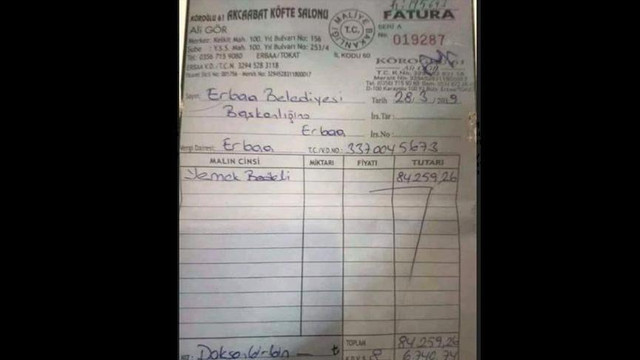 KÖROĞLU 61 AKÇAABAT KÖFTE SALONU
ALİ GÖR
Merkez: Kelkit Mah. 100. Yıl Bulvarı No: 156
Şube : Y.S.S. Mah. 100. Yıl Bulvarı No: 253/4
Tel: 0356 715 9080 ERBAA/TOKAT
ERBAA V.D./T.C.N. 3294 528 3118
MALİYE BAKANLIĞI
T.C.
İL KODU 60
FATURA
SERİ A
No 019287
KÖROĞLU 61
Ali GÖR
Sayın, Erbaa Belediyesi
Tarih 28.3.2019
Başkanlığına
İrs.Tar:
Erbaa
İrs.No:
Vergi Dairesi: Erbaa T.C./V.D.NO: 3370045673
MALIN CİNSİ MİKTARI FİYATI TUTARI
Yemek Bedeli 84.259,26
TOPLAM 84.259,26
Doksanbirbin 8 6.740,74